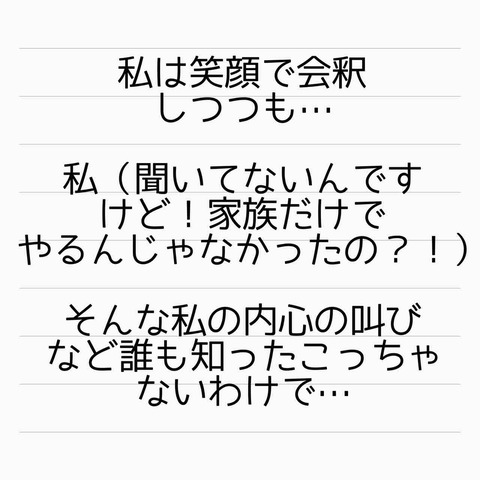 私は笑顔で会釈
しつつも…
私（聞いてないんです
けど！家族だけで
やるんじゃなかったの？！）
そんな私の内心の叫び
など誰も知ったこっちゃ
ないわけで…